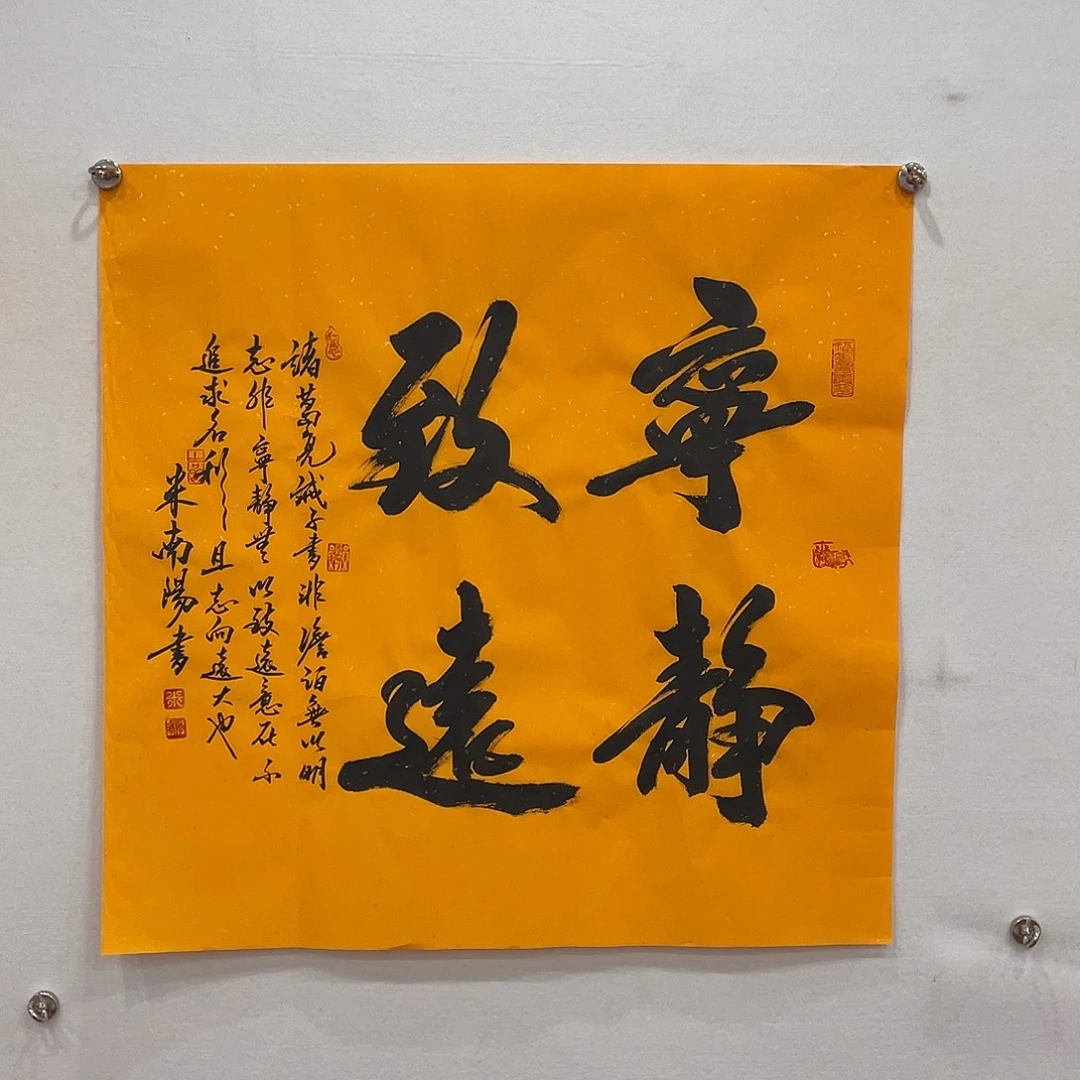 寧靜
致遠
諸葛亮誡子書非澹泊無以明
志非寧靜無以致遠意在不
追求名利之且志向遠大也
米南陽書